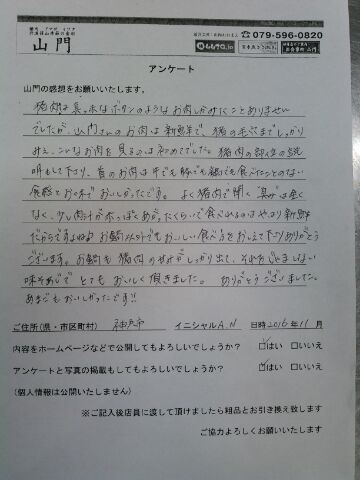 山門
079-596-0820
アンケート
山門の感想をお願いいたします。
猪肉は真っ赤なボタンのようなお肉しかみたことありません
でしたが、山門さんのお肉は新鮮で、猪の毛穴までしっかり
みえ、こんなお肉を見るのは初めてでした。猪肉の部位の説
明もして下さり、首のお肉は牛でも豚でも鶏でも食べたことのない
食感とお味でおいしかったです。よく猪肉で聞く"臭み"は全く
なく、少し肉汁が赤っぽくあがったくらいで食べれるのはやはり新鮮
だからですよね お鍋以外でもおいしい食べ方をおしえて下さりありがとう
ございます。お鍋も猪肉の
味
とてもおいしく頂きました。 ありがとうございました。
あまごもおいしかったです!!
ご住所(県・市区町村) 神戸市 イニシャル A.N 日時 2016年11月
内容をホームページなどで公開してもよろしいでしょうか? ☑はい □いいえ
アンケートと写真の掲載もしてもよろしいでしょうか? ☑はい □いいえ
(個人情報は公開いたしません)
※ご記入後店員に渡して頂けましたら粗品とお引き換え致します
ご協力よろしくお願いいたします